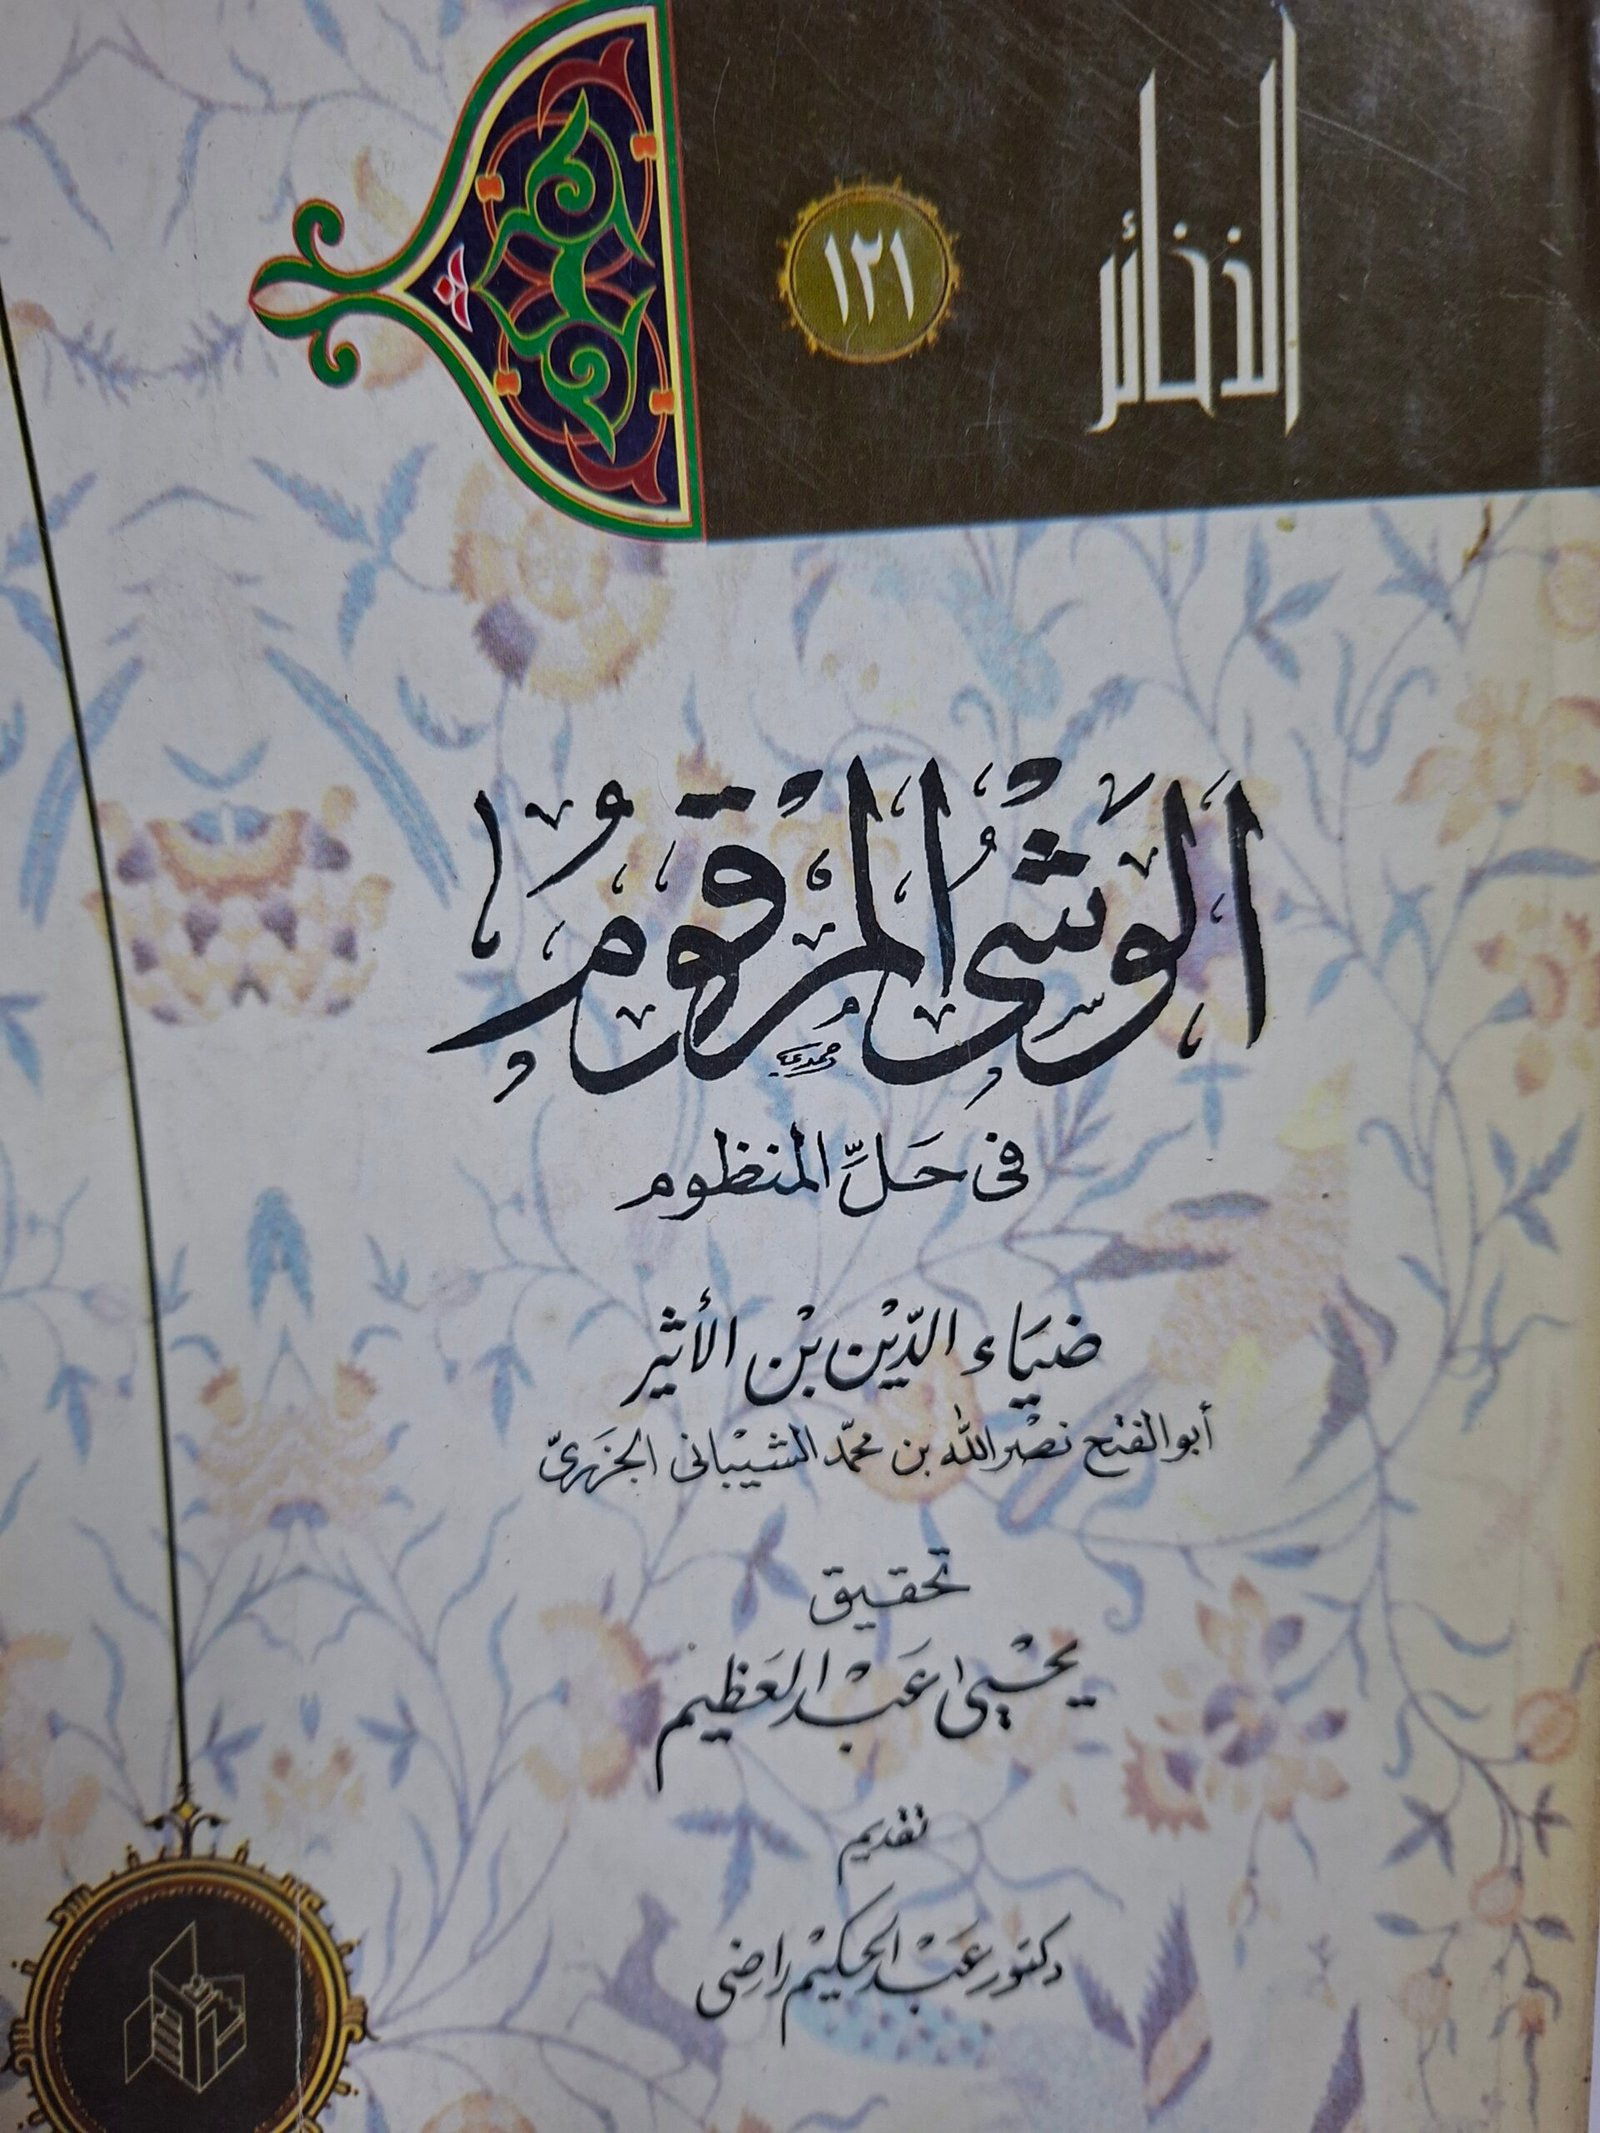 الذخائر
١٢١
الوشى المرقوم
فى حل المنظوم
ضياء الدين بن الأثير
أبو الفتح نصر الله بن محمد الشيبانى الجزرى
تحقيق
يحيى عبد العظيم
تقديم
دكتور عبد الحكيم راضى